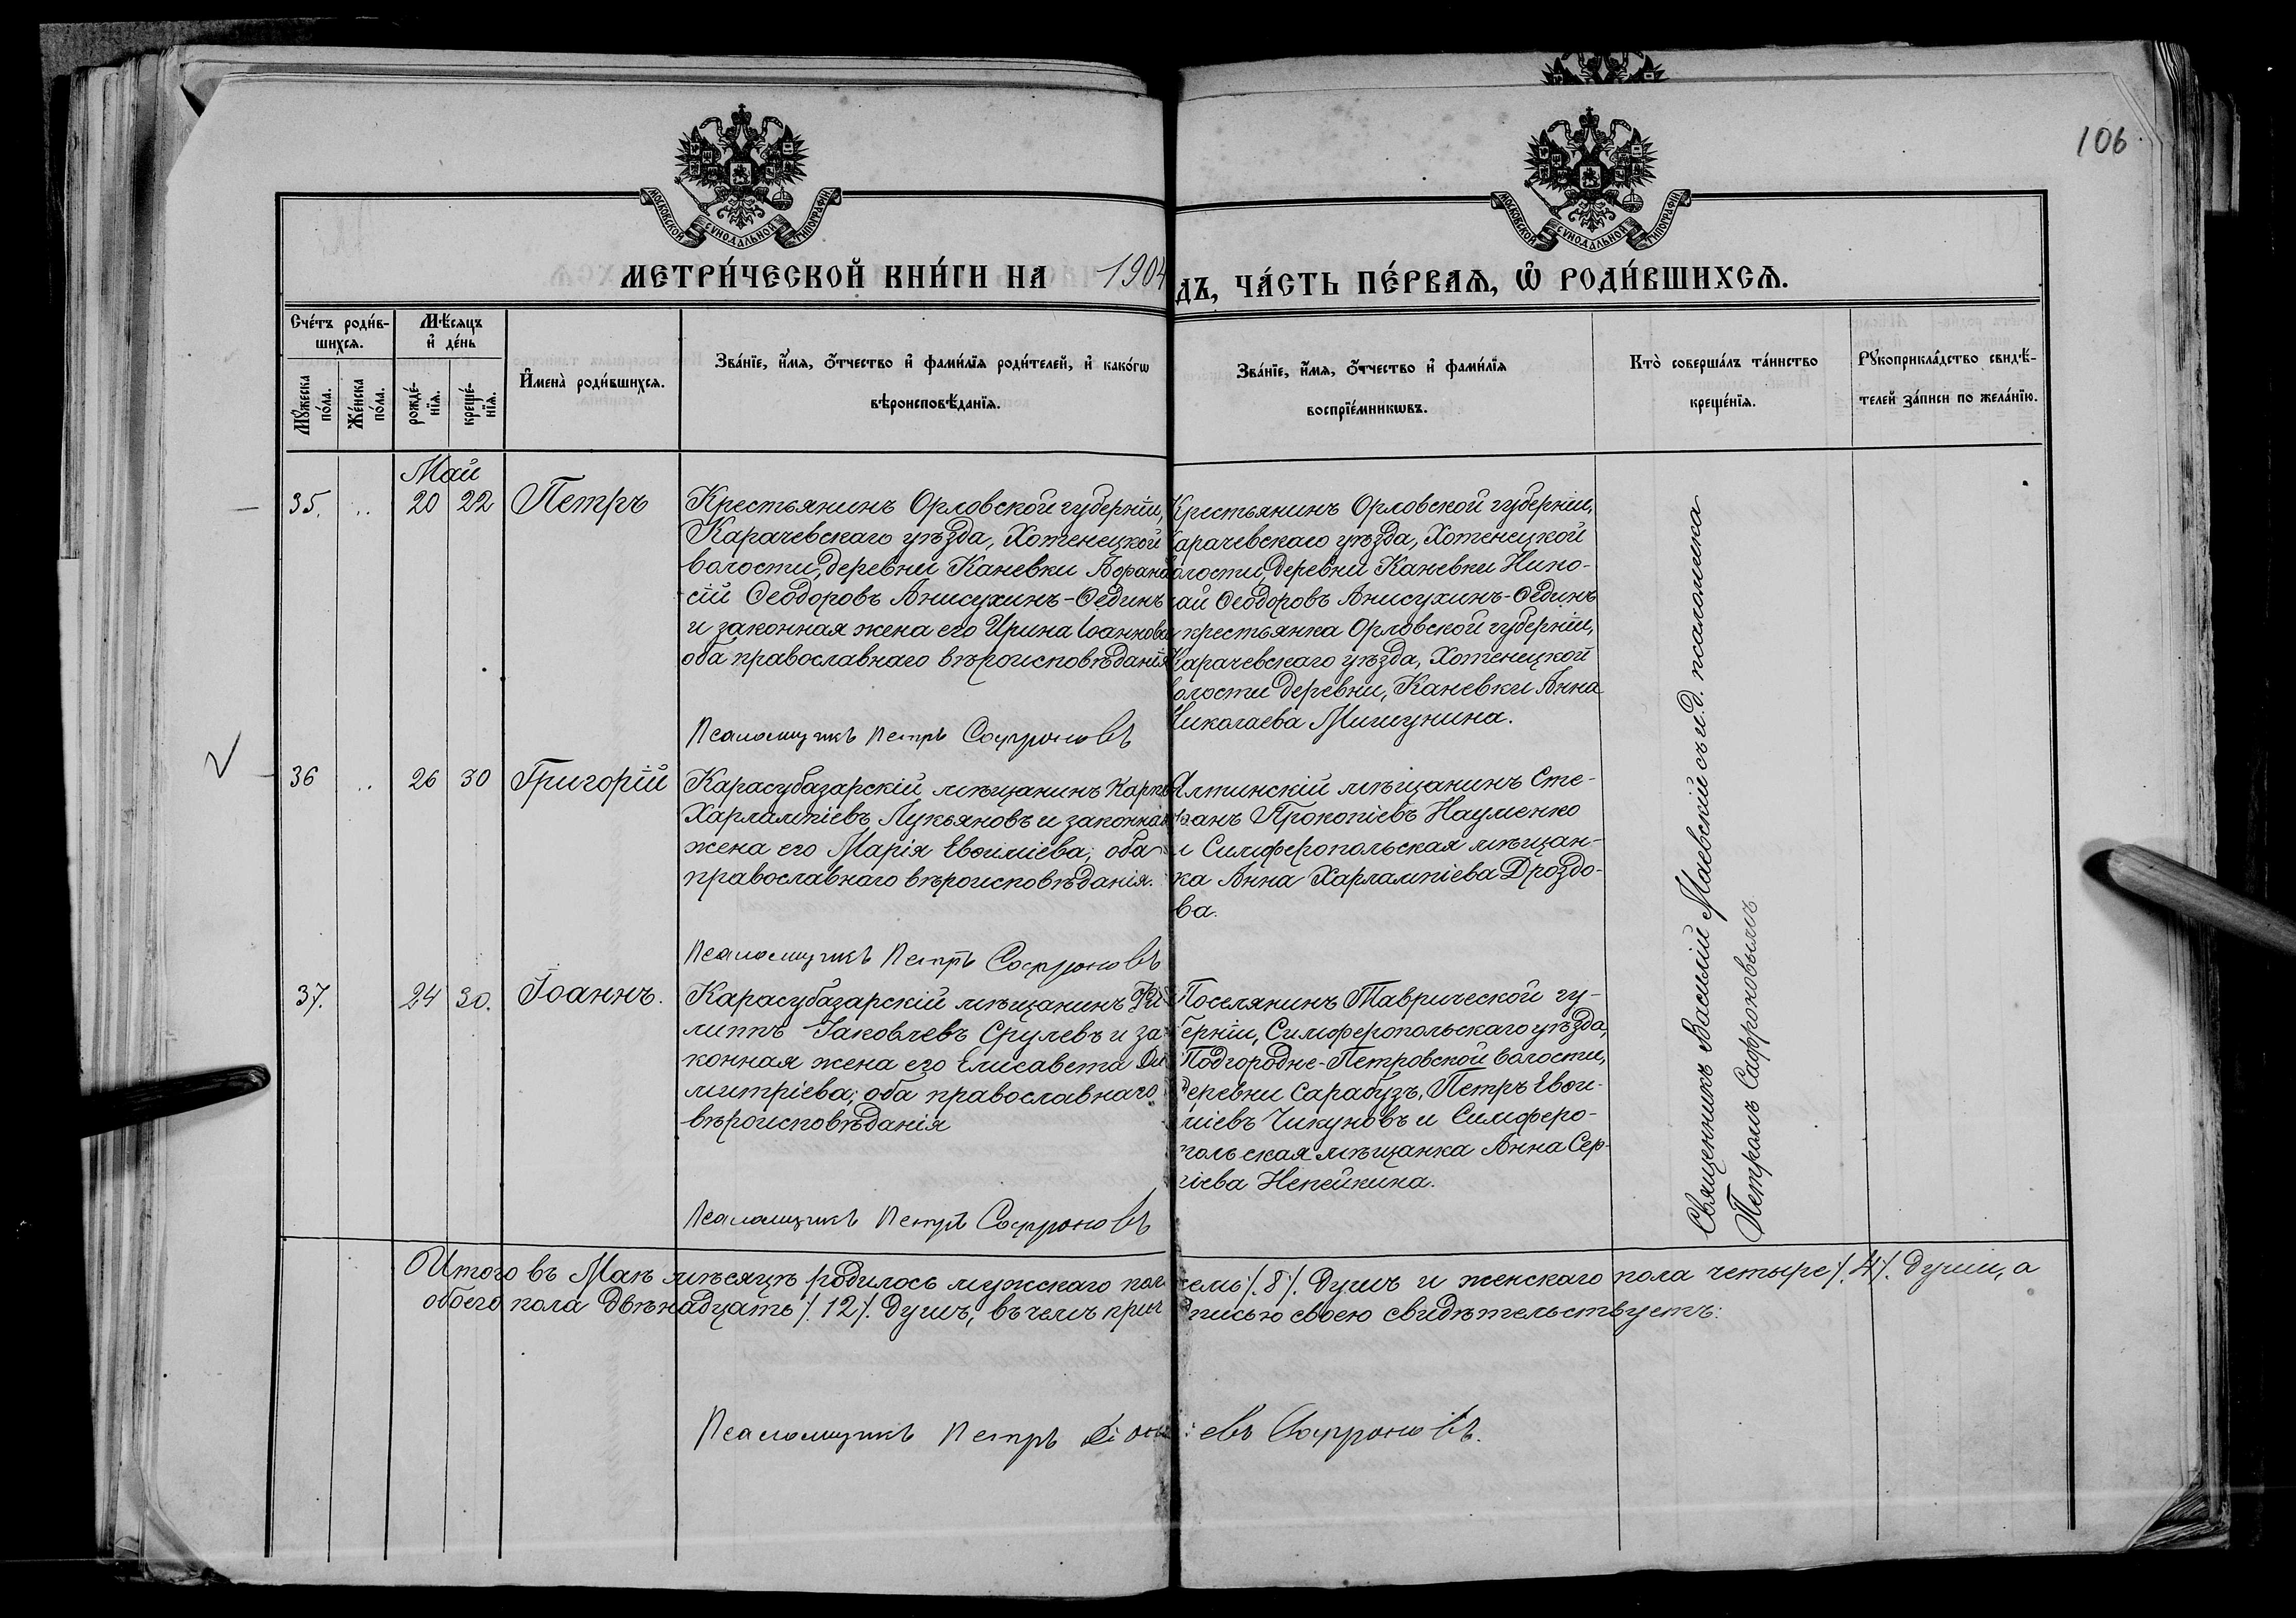 106
МОСКОВСКОЙ СУНОДАЛЬНОЙ ТИПОГРАФІИ
МОСКОВСКОЙ СУНОДАЛЬНОЙ ТИПОГРАФІИ
МЕТРИ́ЧЕСКОЙ КНИ́ГИ НА 1904
ДЪ, ЧА́СТЬ ПЕ́РВАѦ, Ѡ РОДИ́ВШИХСѦ.
Сче́тъ роди́в-
шихсѧ.
Мѣ́сѧцъ
и҆ де́нь
И҆мена̀ роди́вшихсѧ.
Зва́нїе, и҆́мѧ, ѻ҆́тчество и҆ фами́лїѧ роди́телей, и҆ како́гѡ
вѣроисповѣ́данїѧ.
Мꙋ́жеска
по́ла.
Же́нска
по́ла.
рожде́-
нїѧ.
креще́-
нїѧ.
Зва́нїе, и҆́мѧ, ѻ҆́тчество и҆ фами́лїѧ
воспрїе́мникѡвъ.
Кто̀ соверша́лъ та́инство
креще́нїѧ.
Рꙋкоприкла́дство свидѣ́-
телей за́писи по жела́нїю.
Май
35. .. 20 22 Петръ
Крестьянинъ Орловской губерніи,
Карачевскаго уѣзда, Хотенецкой
волости, деревни Каневки
сій Ѳеодоровъ Анисухинъ-Ѳединъ
и законная жена его Ирина Іоаннова
оба православнаго вѣроисповѣданія
Псаломщикъ Петръ Софроновъ
Крестьянинъ Орловской губерніи,
Карачевскаго уѣзда, Хотенецкой
волости, деревни Каневки Нико-
лай Ѳеодоровъ Анисухинъ-Ѳединъ
и крестьянка Орловской губерніи,
Карачевскаго уѣзда, Хотенецкой
волости деревни, Каневки Анна
Николаева Мишунина.
36 .. 26 30 Григорій
Карасубазарскій мѣщанинъ Карпъ
Харлампіевъ Лукьяновъ и законная
жена его Марія Евѳиміева; оба
православнаго вѣроисповѣданія.
Псаломщикъ Петръ Софроновъ
Ялтинскій мѣщанинъ Сте-
фанъ Прокопіевъ Науменко
и Симферопольская мѣщан-
ка Анна Харлампіева Дроздо-
ва.
37. 24 30. Іоаннъ.
Карасубазарскій мѣщанинъ Фи
липпъ Іаковлевъ Срулевъ и за
конная жена его Елисавета Ди
митріева; оба православнаго
вѣроисповѣданія
Псаломщикъ Петръ Софроновъ
Поселянинъ Таврической гу-
берніи, Симферопольскаго уѣзда,
Подгородне-Петровской волости,
деревни Сарабузъ, Петръ Евѳи-
міевъ Чикуновъ и Симферо-
польская мѣщанка Анна Сер-
гіева Непейкина.
Священникъ Василій Маевскій съ и.д. псаломщика
Петромъ Софроновымъ.
Итого въ Маѣ мѣсяцѣ родилось мужскаго пол семь /. 8 /. душъ и женскаго пола четыре /. 4 /. души, а
обоего пола двѣнадцать /. 12 /. душъ, въ чемъ прич дписью своею свидѣтельствуетъ:
Псаломщикъ Петръ евъ Софроновъ.